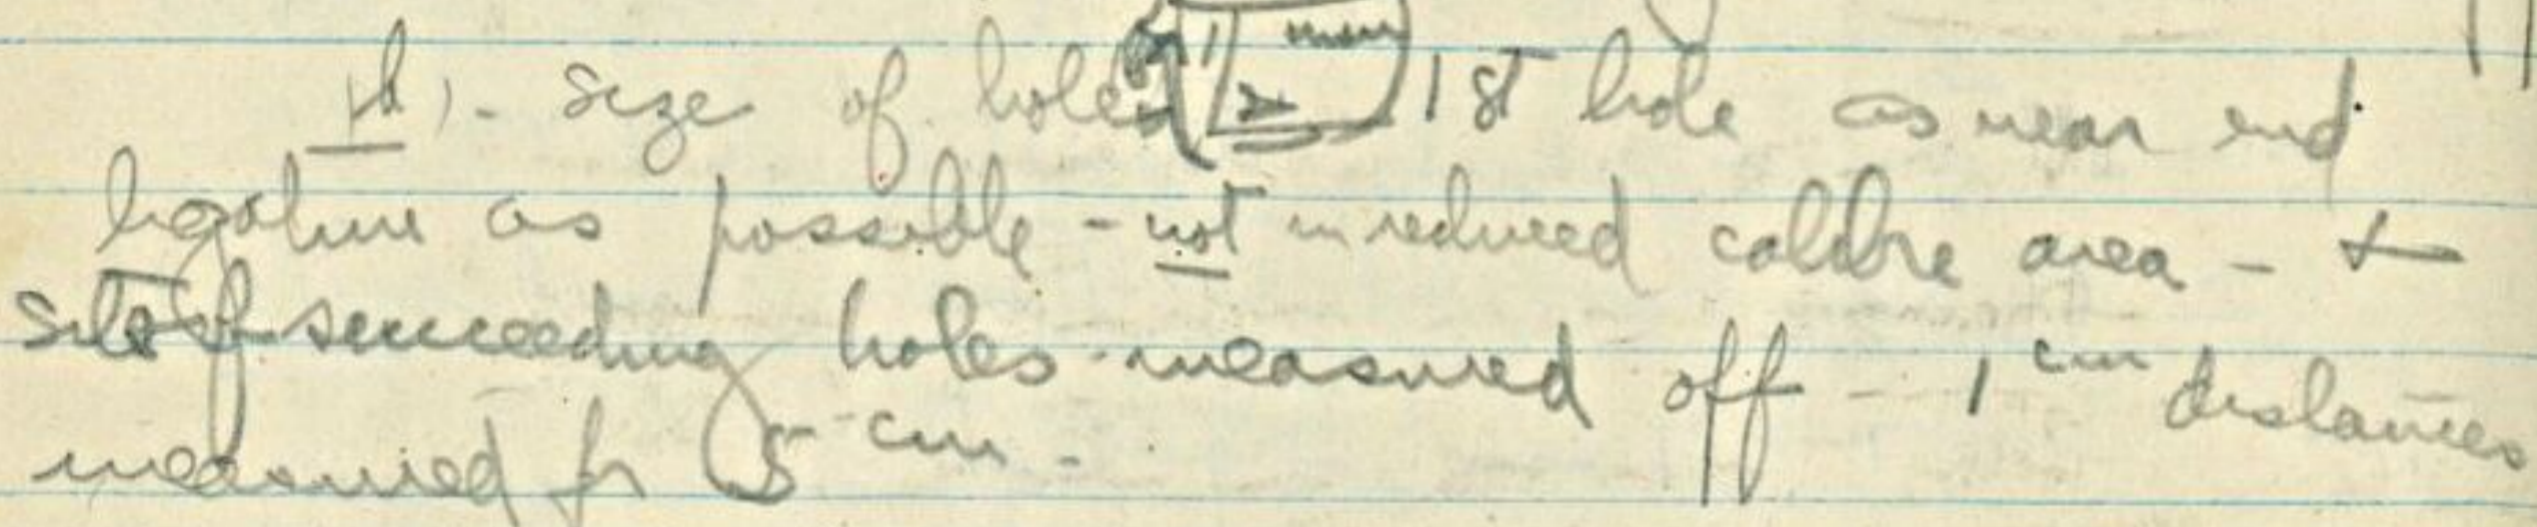 d). - size of holes 1/2 mm 1st hole as near end
ligature as possible - not in reduced calibre area - +
sites of succeeding holes measured off - 1 cm distances
measured for 5 cm -